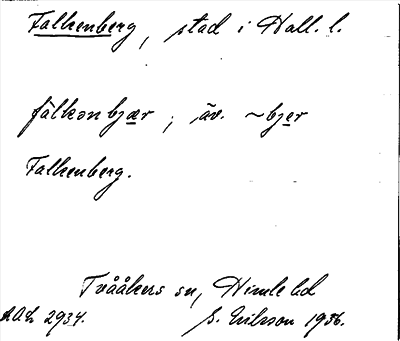 Falkenberg, stad i Hall. l.
fàlkənbjær ; äv. ~bjer
Falkenberg.
Tvååkers sn, Himle hd
AOL 2934. S. Erikson 1936.